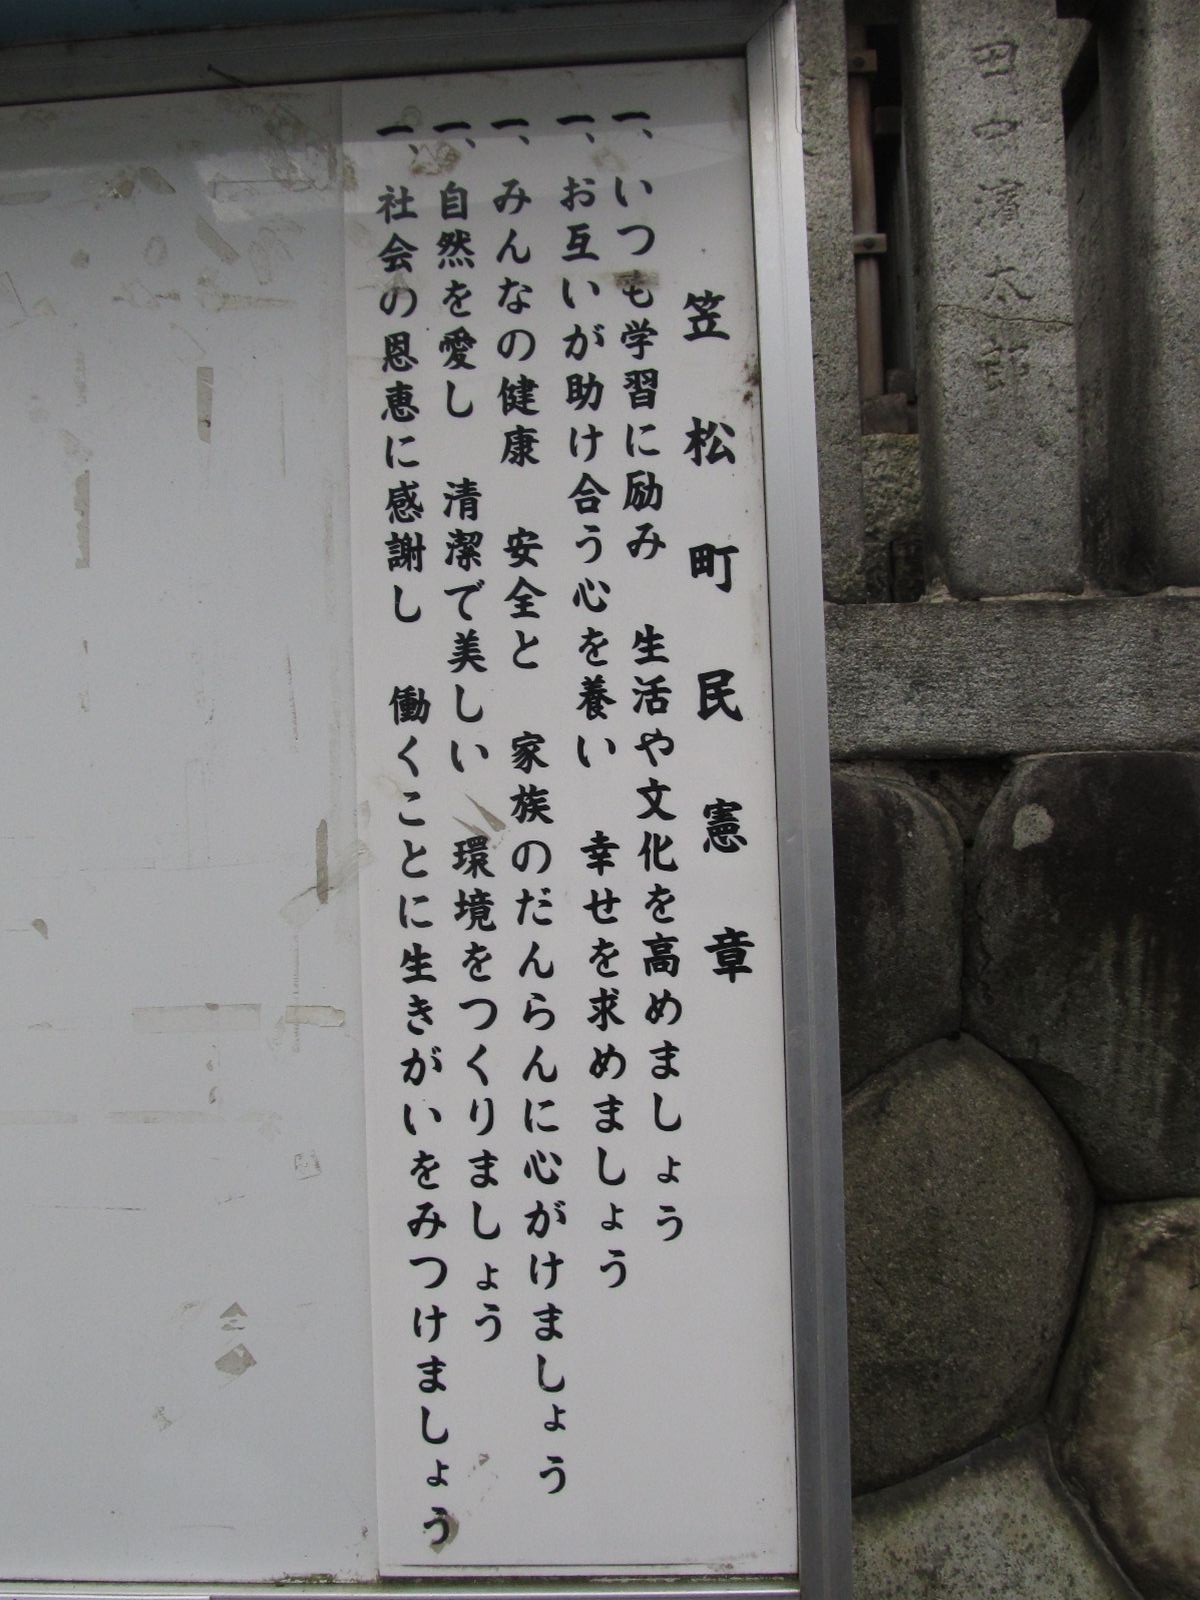 笠松町民憲章
一、いつも学習に励み　生活や文化を高めましょう
一、お互いが助け合う心を養い　幸せを求めましょう
一、みんなの健康　安全と　家族のだんらんに心がけましょう
一、自然を愛し　清潔で美しい　環境をつくりましょう
一、社会の恩恵に感謝し　働くことに生きがいをみつけましょう
田中濱太郎